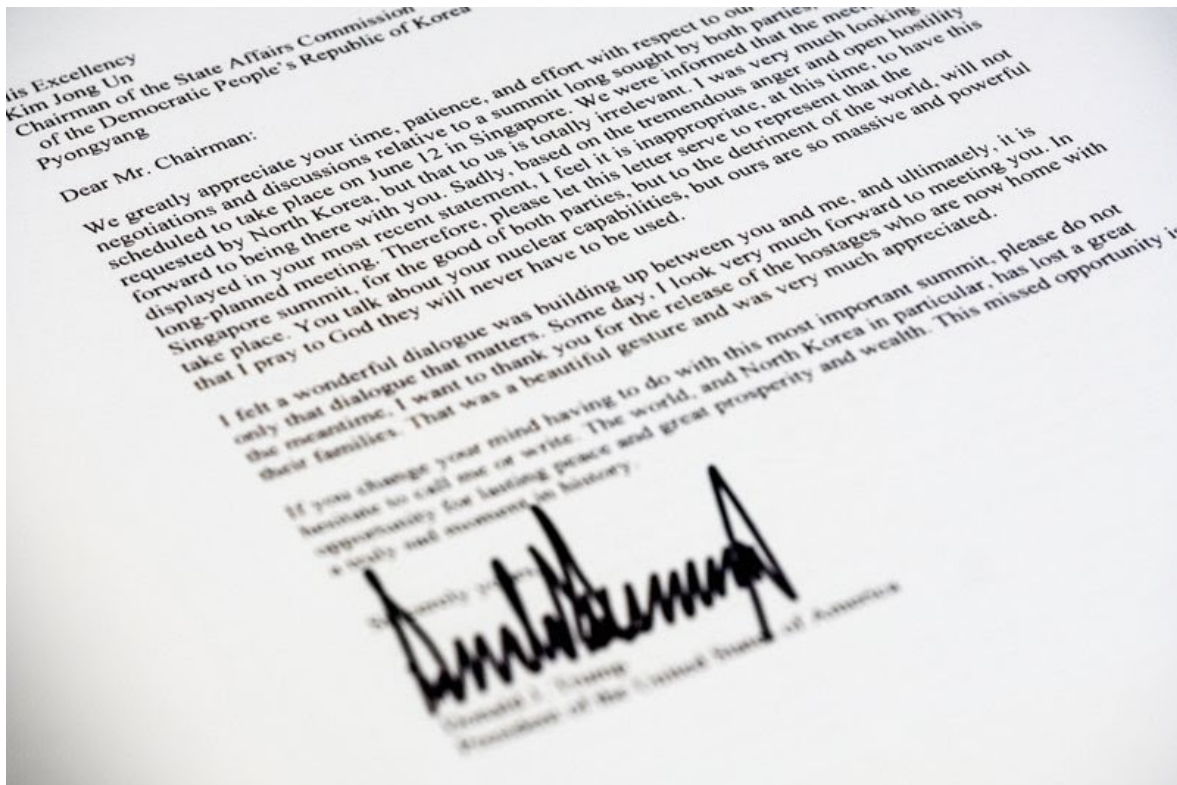 is Excellency
Kim Jong Un
Chairman of the State Affairs Commission
of the Democratic People's Republic of Korea
Pyongyang
Dear Mr. Chairman:
We greatly appreciate your time, patience, and effort with respect to our
negotiations and discussions relative to a summit long sought by both parties,
scheduled to take place on June 12 in Singapore. We were informed that the meet
requested by North Korea, but that to us is totally irrelevant. I was very much looking
forward to being there with you. Sadly, based on the tremendous anger and open hostility
displayed in your most recent statement, I feel it is inappropriate, at this time, to have this
long-planned meeting. Therefore, please let this letter serve to represent that the
Singapore summit, for the good of both parties, but to the detriment of the world, will not
take place. You talk about your nuclear capabilities, but ours are so massive and powerful
that I pray to God they will never have to be used.
I felt a wonderful dialogue was building up between you and me, and ultimately, it is
only that dialogue that matters. Some day, I look very much forward to meeting you. In
the meantime, I want to thank you for the release of the hostages who are now home with
their families. That was a beautiful gesture and was very much appreciated.
If you change your mind having to do with this most important summit, please do not
hesitate to call me or write. The world, and North Korea in particular, has lost a great
opportunity for lasting peace and great prosperity and wealth. This missed opportunity is
a truly sad moment in history.
yours,
Donald J. Trump
President of the United States of America